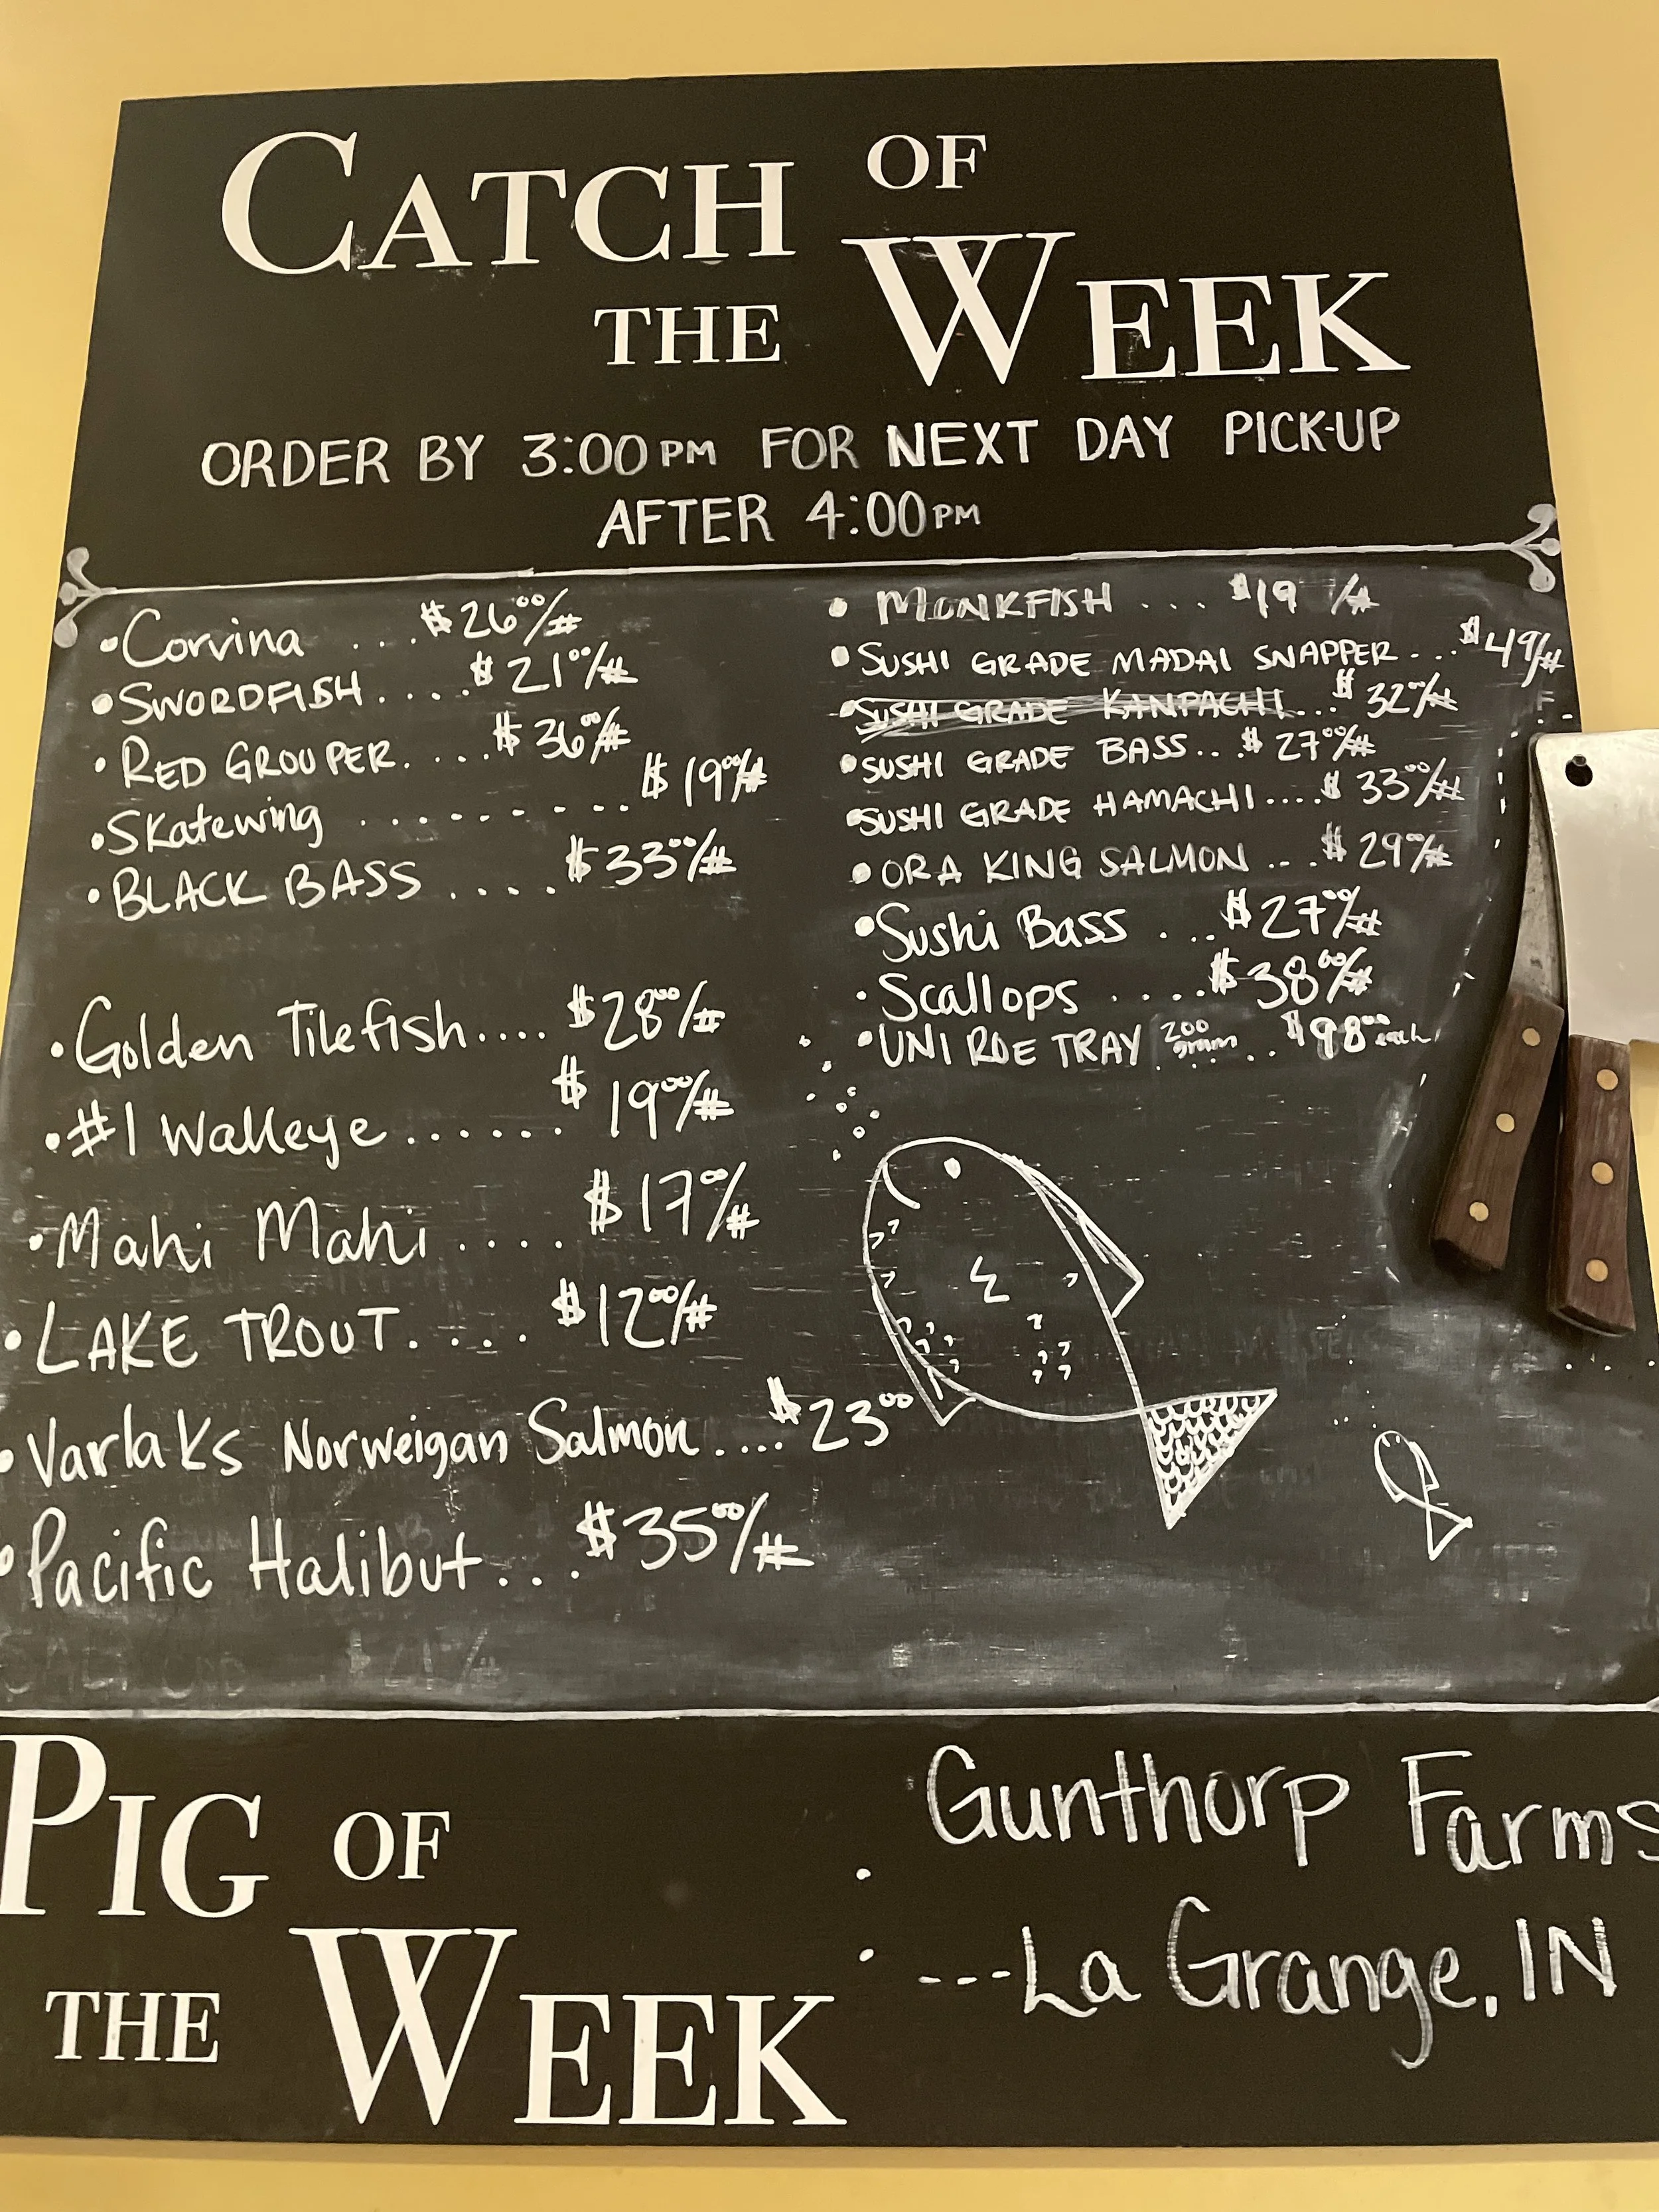 CATCH OF
THE WEEK
ORDER BY 3:00PM FOR NEXT DAY PICK-UP
AFTER 4:00PM
• Corvina ... $26⁰⁰/#
• SWORDFISH .... $21⁰⁰/#
• RED GROUPER .... $36⁰⁰/#
• Skatewing ........ $19⁰⁰/#
• BLACK BASS .... $33⁰⁰/#
• Golden Tilefish .... $28⁰⁰/#
• #1 Walleye ...... $19⁰⁰/#
• Mahi Mahi .... $17⁰⁰/#
• LAKE TROUT .... $12⁰⁰/#
• Varlaks Norweigan Salmon .... $23⁰⁰
• Pacific Halibut ... $35⁰⁰/#
• MONKFISH ... $19 /#
• SUSHI GRADE MADAI SNAPPER ... $49/#
• SUSHI GRADE KANPACHI ... $32⁰⁰/#
• SUSHI GRADE BASS .. $27⁰⁰/#
• SUSHI GRADE HAMACHI .... $33⁰⁰/#
• ORA KING SALMON ... $29⁰⁰/#
• Sushi Bass ... $27⁰⁰/#
• Scallops .... $38⁰⁰/#
• UNI ROE TRAY 200 gram .. $98⁰⁰ each
PIG OF
THE WEEK
Gunthorp Farms
---La Grange, IN